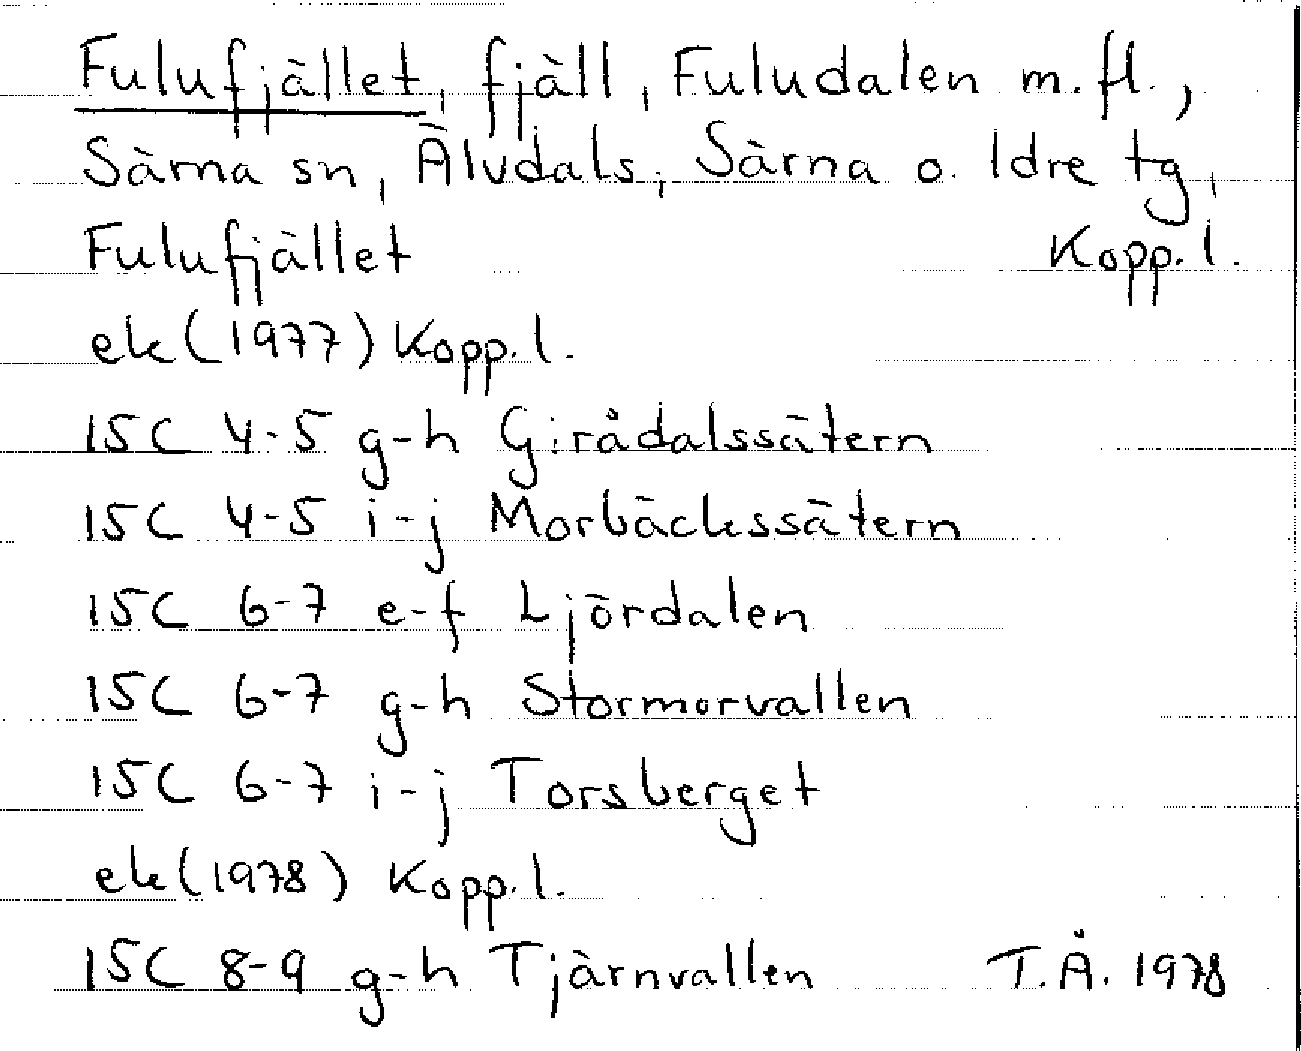 Fulufjället, fjäll, Fuludalen m.fl.,
Särna sn, Älvdals, Särna o. Idre tg,
Fulufjället Kopp.l.
ek(1977) Kopp.l.
15C 4-5 g-h Girådalssätern
15C 4-5 i-j Morbäckssätern
15C 6-7 e-f Ljördalen
15C 6-7 g-h Stormorvallen
15C 6-7 i-j Torsberget
ek(1978) Kopp.l.
15C 8-9 g-h Tjärnvallen T.Å. 1978